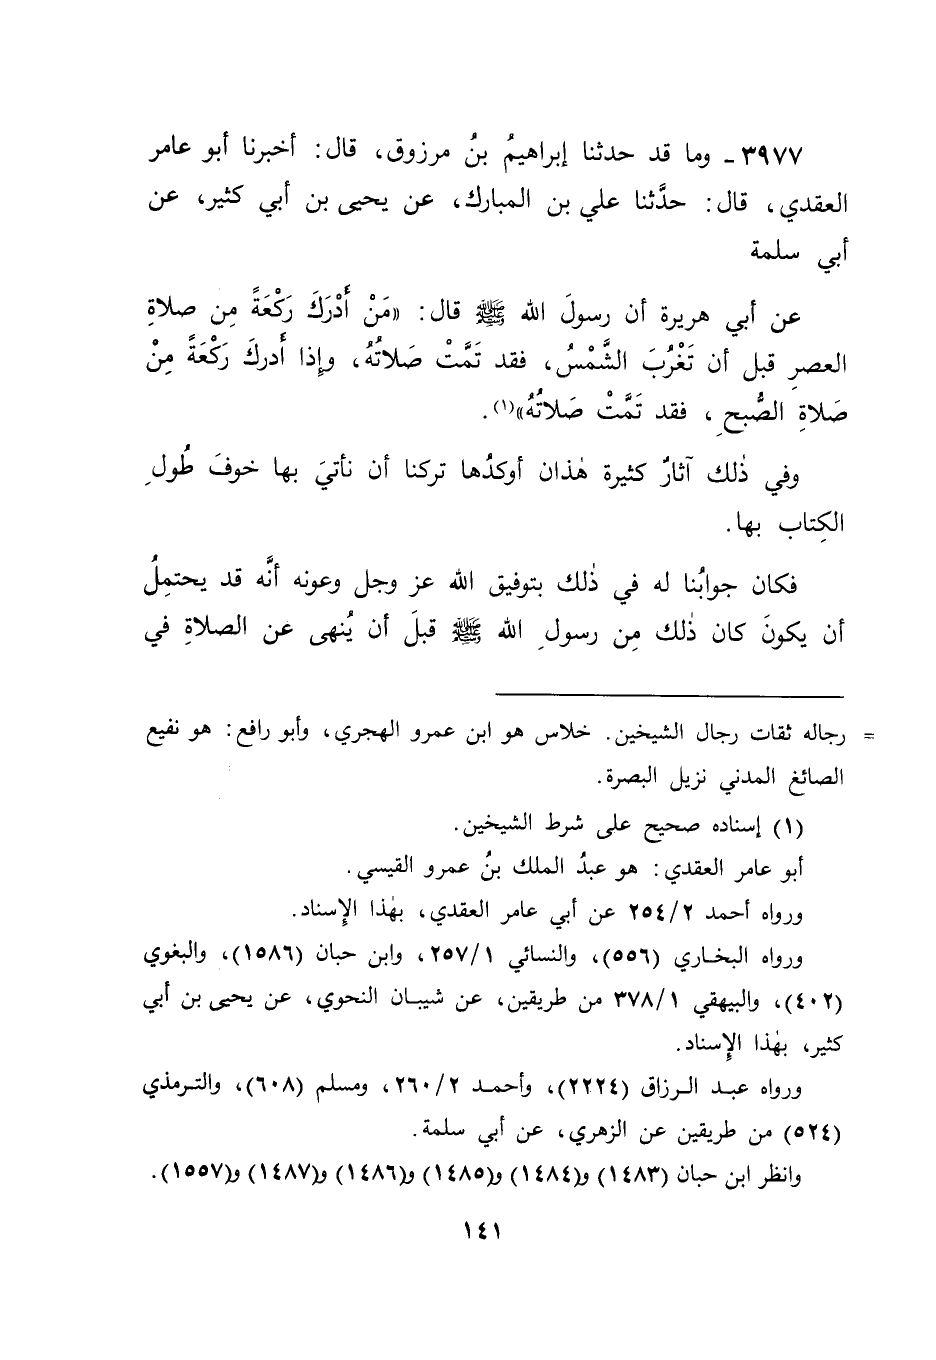 ٣٩٧٧ ـ وما قد حدثنا إبراهيمُ بنُ مرزوق، قال: أخبرنا أبو عامر
العقدي، قال: حدَّثنا علي بن المبارك، عن يحيى بن أبي كثير، عن
أبي سلمة
عن أبي هريرة أن رسولَ الله ﷺ قال: «مَنْ أَدْرَكَ رَكْعَةً مِن صلاةِ
العصرِ قبل أن تَغْرُبَ الشَّمْسُ، فقد تَمَّتْ صَلاتُهُ، وإذا أَدركَ رَكْعَةً مِنْ
صَلاةِ الصُّبحِ، فقد تَمَّتْ صَلاتُهُ»(١).
وفي ذٰلك آثارٌ كثيرة هٰذان أوكدُها تركنا أن نأتيَ بها خوفَ طُولِ
الكِتاب بها.
فكان جوابُنا له في ذٰلك بتوفيق الله عز وجل وعونه أنَّه قد يحتمِلُ
أن يكونَ كان ذٰلك مِن رسولِ الله ﷺ قبلَ أن يُنهى عن الصلاةِ في
= رجاله ثقات رجال الشيخين. خلاس هو ابن عمرو الهجري، وأبو رافع: هو نفيع
الصائغ المدني نزيل البصرة.
(١) إسناده صحيح على شرط الشيخين.
أبو عامر العقدي: هو عبدُ الملك بنُ عمرو القيسي.
ورواه أحمد ٢/٢٥٤ عن أبي عامر العقدي، بهٰذا الإِسناد.
ورواه البخاري (٥٥٦)، والنسائي ١/٢٥٧، وابن حبان (١٥٨٦)، والبغوي
(٤٠٢)، والبيهقي ١/٣٧٨ من طريقين، عن شيبان النحوي، عن يحيى بن أبي
كثير، بهٰذا الإِسناد.
ورواه عبد الرزاق (٢٢٢٤)، وأحمد ٢/٢٦٠، ومسلم (٦٠٨)، والترمذي
(٥٢٤) من طريقين عن الزهري، عن أبي سلمة.
وانظر ابن حبان (١٤٨٣) و(١٤٨٤) و(١٤٨٥) و(١٤٨٦) و(١٤٨٧) و(١٥٥٧).
١٤١